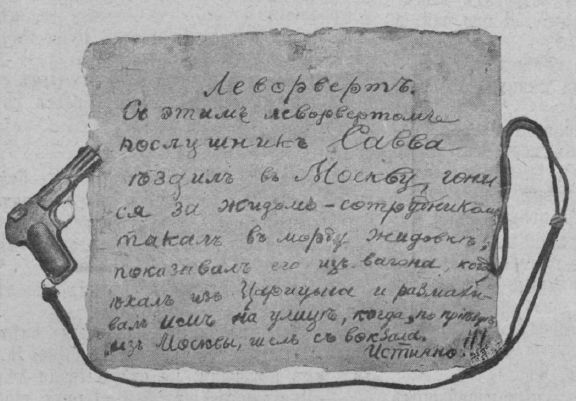 Леворвертъ.
Съ этимъ леворвертомъ
послушникъ Савва
ѣздилъ въ Москву, гонил
ся за жидомъ-сотрудникомъ
такалъ въ морду жидовкѣ,
показывалъ его изъ вагона, когда
ѣхалъ изъ Царицына и размахи-
валъ имъ на улицѣ, когда, по пріѣздѣ
изъ Москвы, шелъ съ вокзала.
Истинно!!!